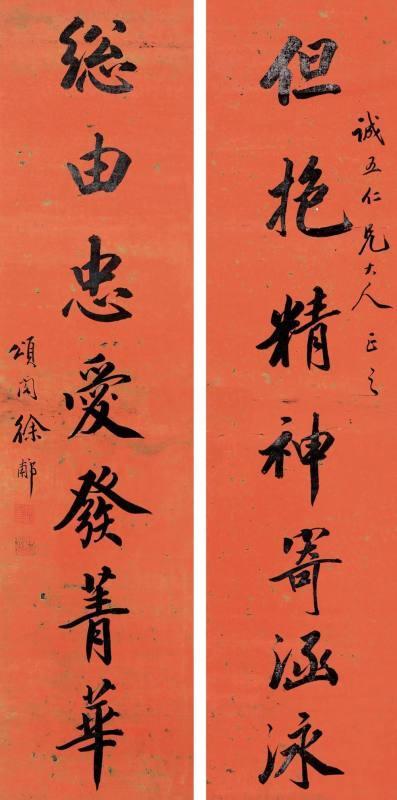 但抱精神寄涵泳
誠五仁兄大人正之
總由忠愛發菁華
頌閣徐郙